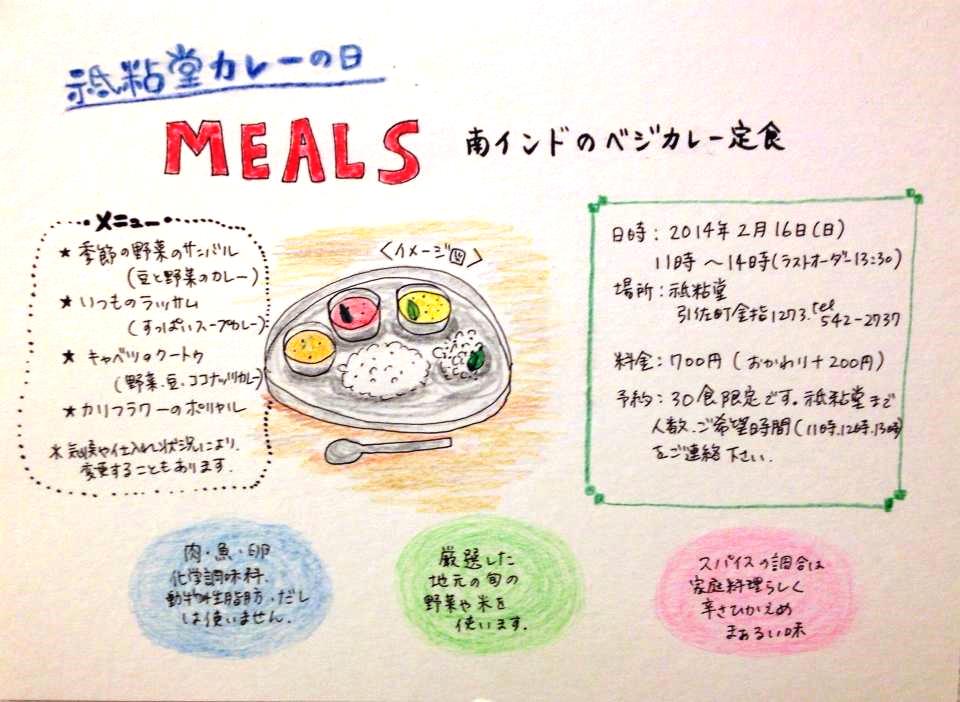 祗粘堂カレーの日
MEALS 南インドのベジカレー定食
・メニュー・
★ 季節の野菜のサンバル
(豆と野菜のカレー)
★ いつものラッサム
(すっぱいスープカレー)
★ キャベツのクートゥ
(野菜、豆、ココナッツカレー)
★ カリフラワーのポリヤル
※気候や仕入れ状況により、
変更することもあります。
〈イメージ図〉
日時：2014年2月16日(日)
11時～14時(ラストオーダー13:30)
場所：祗粘堂
引佐町金指1273. tel 542-2737
料金：700円 (おかわり+200円)
予約：30食限定です。祗粘堂まで
人数、ご希望時間(11時、12時、13時)
をご連絡下さい.
肉・魚・卵
化学調味料、
動物性脂肪・だし
は使いません.
厳選した
地元の旬の
野菜や米を
使います.
スパイスの調合は
家庭料理らしく
辛さひかえめ
まぁるい味